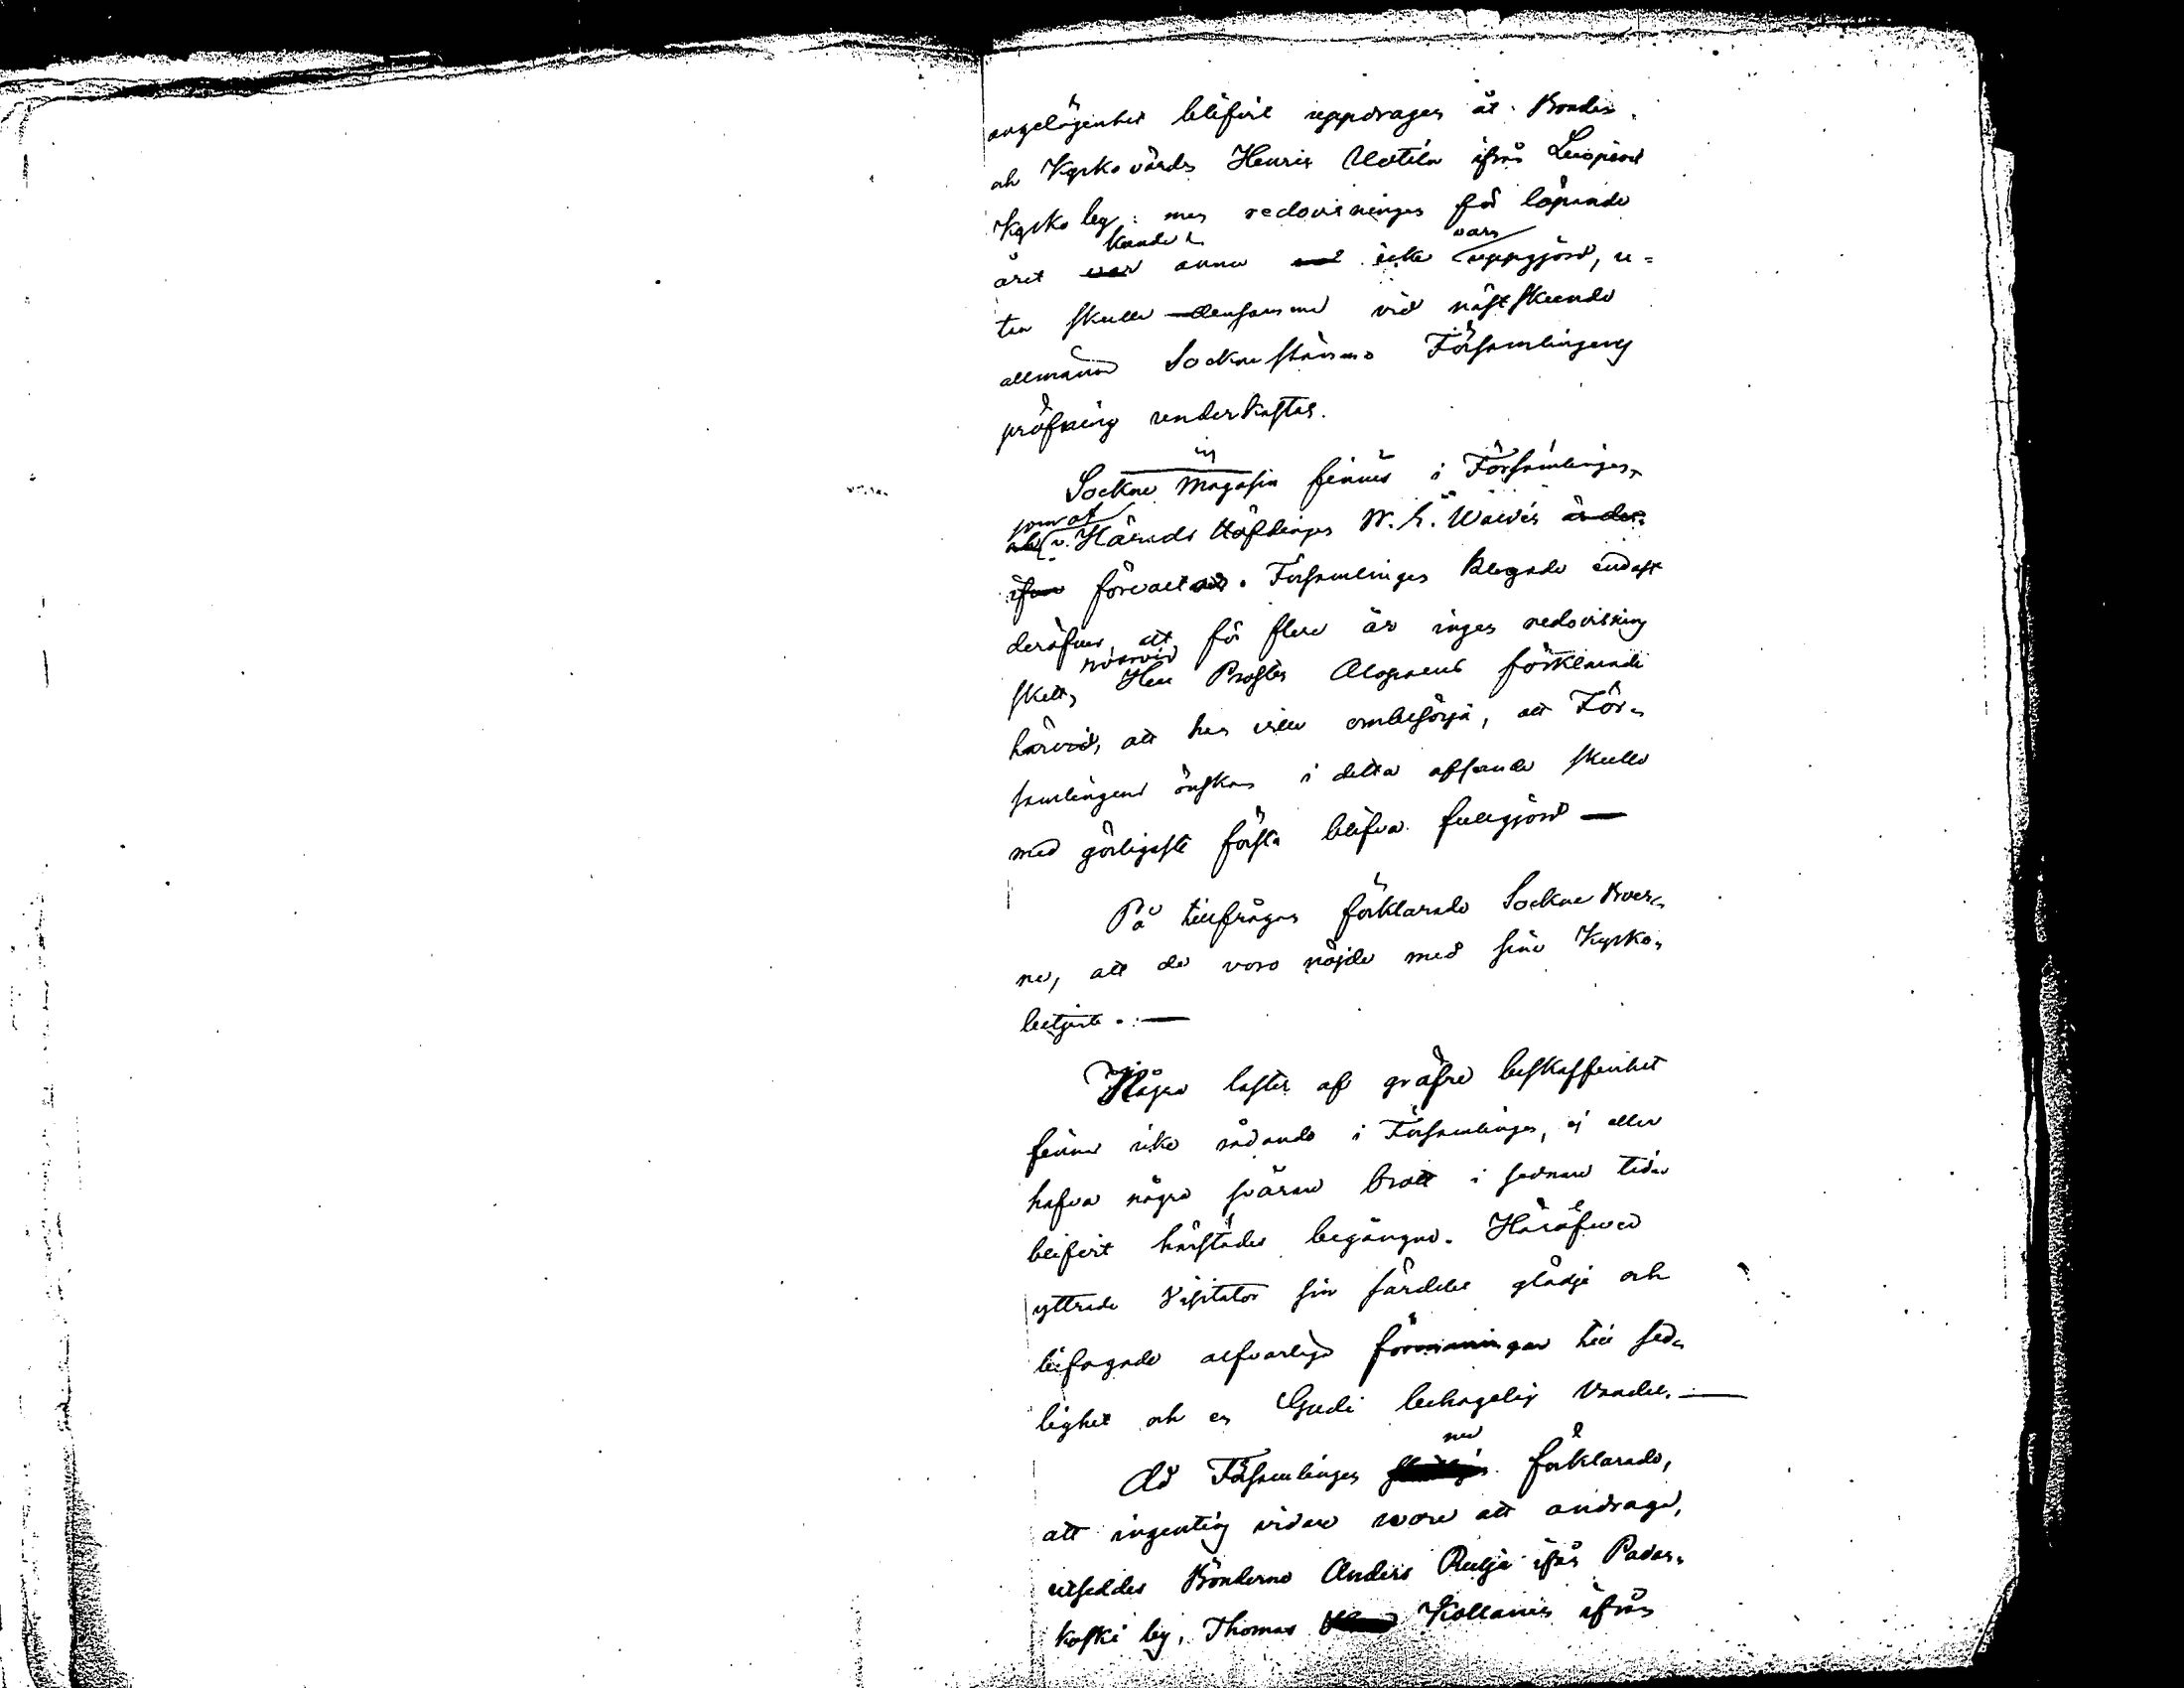 angelägenhet blifvit uppdragen åt Bonden
och Kyrkovärden Henric Uotila ifrån
Kyrkoby: men redovisningen för löpande
året kunde ännu icke vara uppgjord, u=
tan skulle densamma vid nästskeende
allmänna Sockne stämma Församlingens
pröfning underkastas.
Sockne Magasin finnes i Församlingen,
som af v. Härads Höfdingen W. G.
förvaltas. Församlingen klagade endast
deröfver, att för flere år ingen redovisning
skett, hvarvid Herr Prosten Alopaeus förklarade
härvid, att han ville ombesörja, att För-
samlingens önskan i detta afseende skulle
med görligaste första blifva fullgjord —
På tillfrågan förklarade Sockne Boer-
ne, att de voro nöjde med sine Kyrko-
betjente. —
Några laster af gröfre beskaffenhet
finnas icke rådande i Församlingen, ej eller
hafva några svårare brott i sednare tider
blifvit härstädes begångne. Häröfver
yttrade Visitator sin särdeles glädje och
bifogade alfvarliga förmaningar till sed-
lighet och en Gudi behagelig vandel. —
Då Församlingen nu förklarade,
att ingenting vidare vore att andraga,
utseddes Bönderne Anders Rulja ifrån Padas-
koski by, Thomas Kollanen ifrån